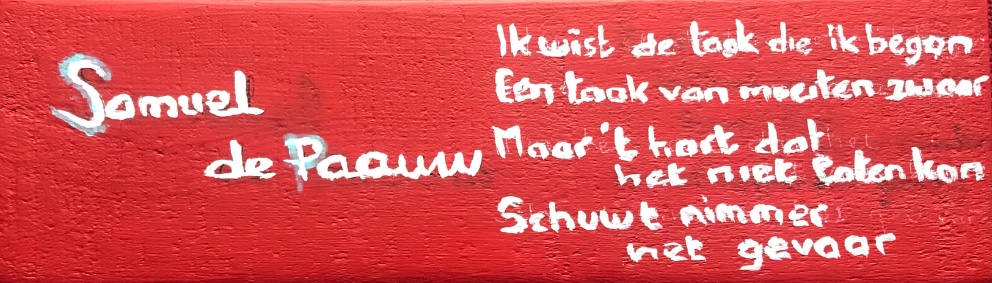 Samuel
de Paauw
Ik wist de taak die ik began
Een taak van moeiten zwaar
Maar 't hart dat
het niet laten kon
Schuwt nimmer
het gevaar